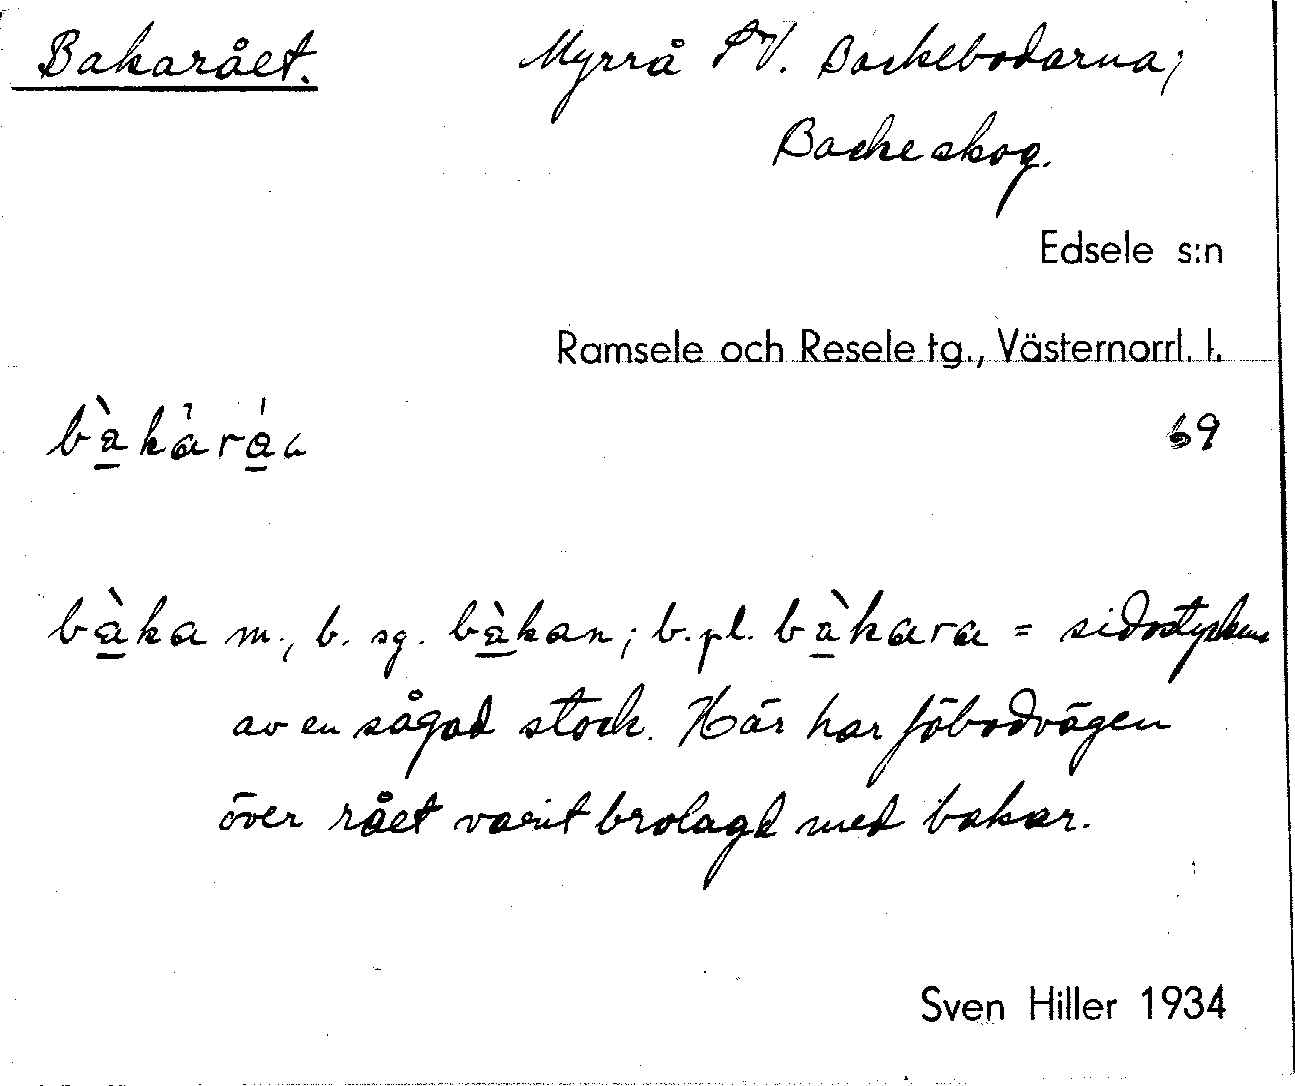 Bakarået. Myrrå SV. Backebodarna;
Backeskog.
Edsele s:n
Ramsele och Resele tg., Västernorrl. l.
bàkàráa 69
bàka m., b. sg. bàkan; b. pl. bàkara = sidostycken
av en sågad stock. Här har fäbodvägen
över rået varit brolagd med bakar.
Sven Hiller 1934